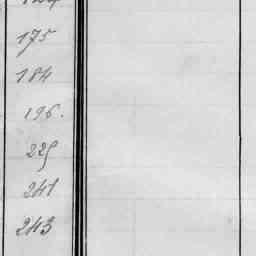 175
184
196.
225
241
243